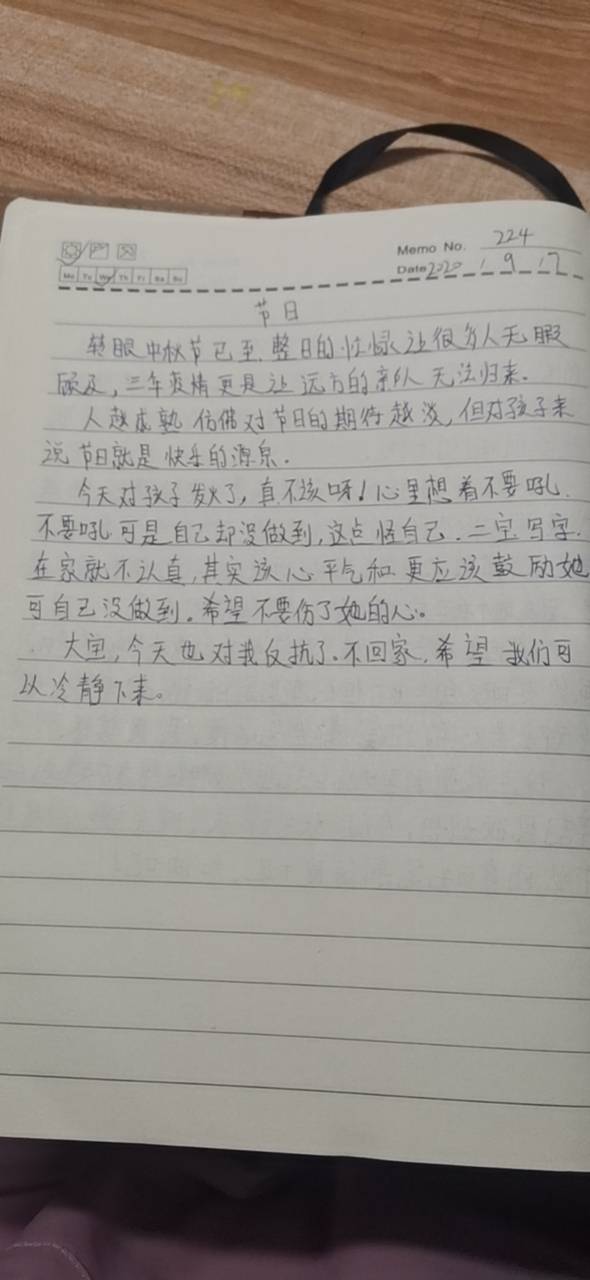 Memo No. 224
Mo Tu We Th Fr Sa Su
Date 2020 / 9 / 17
节日
转眼中秋节已至,整日的忙碌让很多人无暇
顾及,三年疫情更是让远方的亲人无法归来.
人越成熟仿佛对节日的期待越淡,但对孩子来
说节日就是快乐的源泉.
今天对孩子发火了,真不该呀!心里想着不要吼,
不要吼可是自己却没做到,这点怪自己.二宝写字,
在家就不认真,其实该心平气和更应该鼓励她
可自己没做到.希望不要伤了她的心。
大宝,今天也对我反抗了.不回家.希望我们可
以冷静下来。